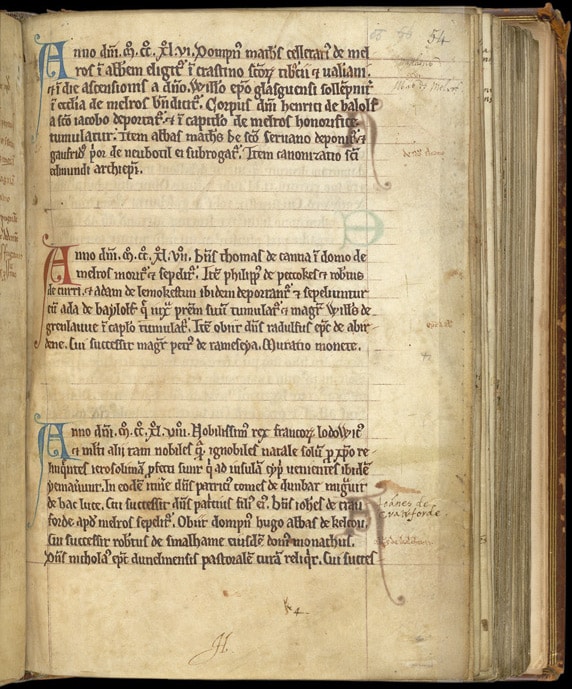 54
Anno dñi. m̃. cc̃. xl̃. vi. Dompn᷒ math᷒s cellerari᷒ de mel
ros ĩ abbem eligit᷒ ĩ crastino scōꝝ tiburcii ⁊ ualiani.
⁊ ĩ die ascensionis a dño. Willo ep̃o glasguensi sollepnit᷒
ĩ eccl̃ia de melros bñdicit᷒. Corpus dñi henrici de balolf
a sc̃o iacobo deportat᷒ ⁊ ĩ capitl̃o de melros honorifice
tumulatur. Item abbas math᷒s de sc̃o seruano deponit᷒ ⁊
gaufrid᷒ p̃or de neubotil ei subrogat᷒. Item canonizatio sc̃i
edmundi archiep̃i.
Anno dñi. m̃. cc̃. xl̃. vii. Dñs thomas de canna ĩ domo de
melros morit᷒ ⁊ sepelit᷒. Itē philipp᷒ de pettokes ⁊ robtus
de curri. ⁊ adam de lemokestun ibidem deportant᷒ ⁊ sepeliuntur
cū ada de baylolf. q̃ iuxᵃ pr̃em suū tumulat᷒ ⁊ magr̃ Willo de
grenlauue ĩ capl̃o tumulat᷒. Itē obiit dñs radulfus ep̃c de abir
dene. Cui successit magr̃ petr᷒ de rameseya. Mutatio monete.
Anno dñi. m̃. cc̃. xl̃. viii. Nobilissim᷒ rex francoꝝ lodowic᷒
⁊ mlti alii tam nobiles q̃ ignobiles natale solū ꝓ xp̃o re
linquētes ierosolimā p̃fecti sunt q̃ ad insulā cyp̃ uenientes ibidē
yemauerūt. In eodē itiñe dñs patrici᷒ comes de dunbar migᵃuit
de hac luce. Cui successit dñs patricius fili᷒ ei᷒. Dñs ioh̃es de crau
forde apd̃ melros sepelit᷒. Obiit dompn᷒ hugo abbas de kelcou.
Cui successit robtus de smalhame eiusdē dom᷒ monachus.
Dñs nichola᷒ ep̃c dunelmensis pastoralē curā reliq̃t. Cui succes
Joanes de
Crawforde